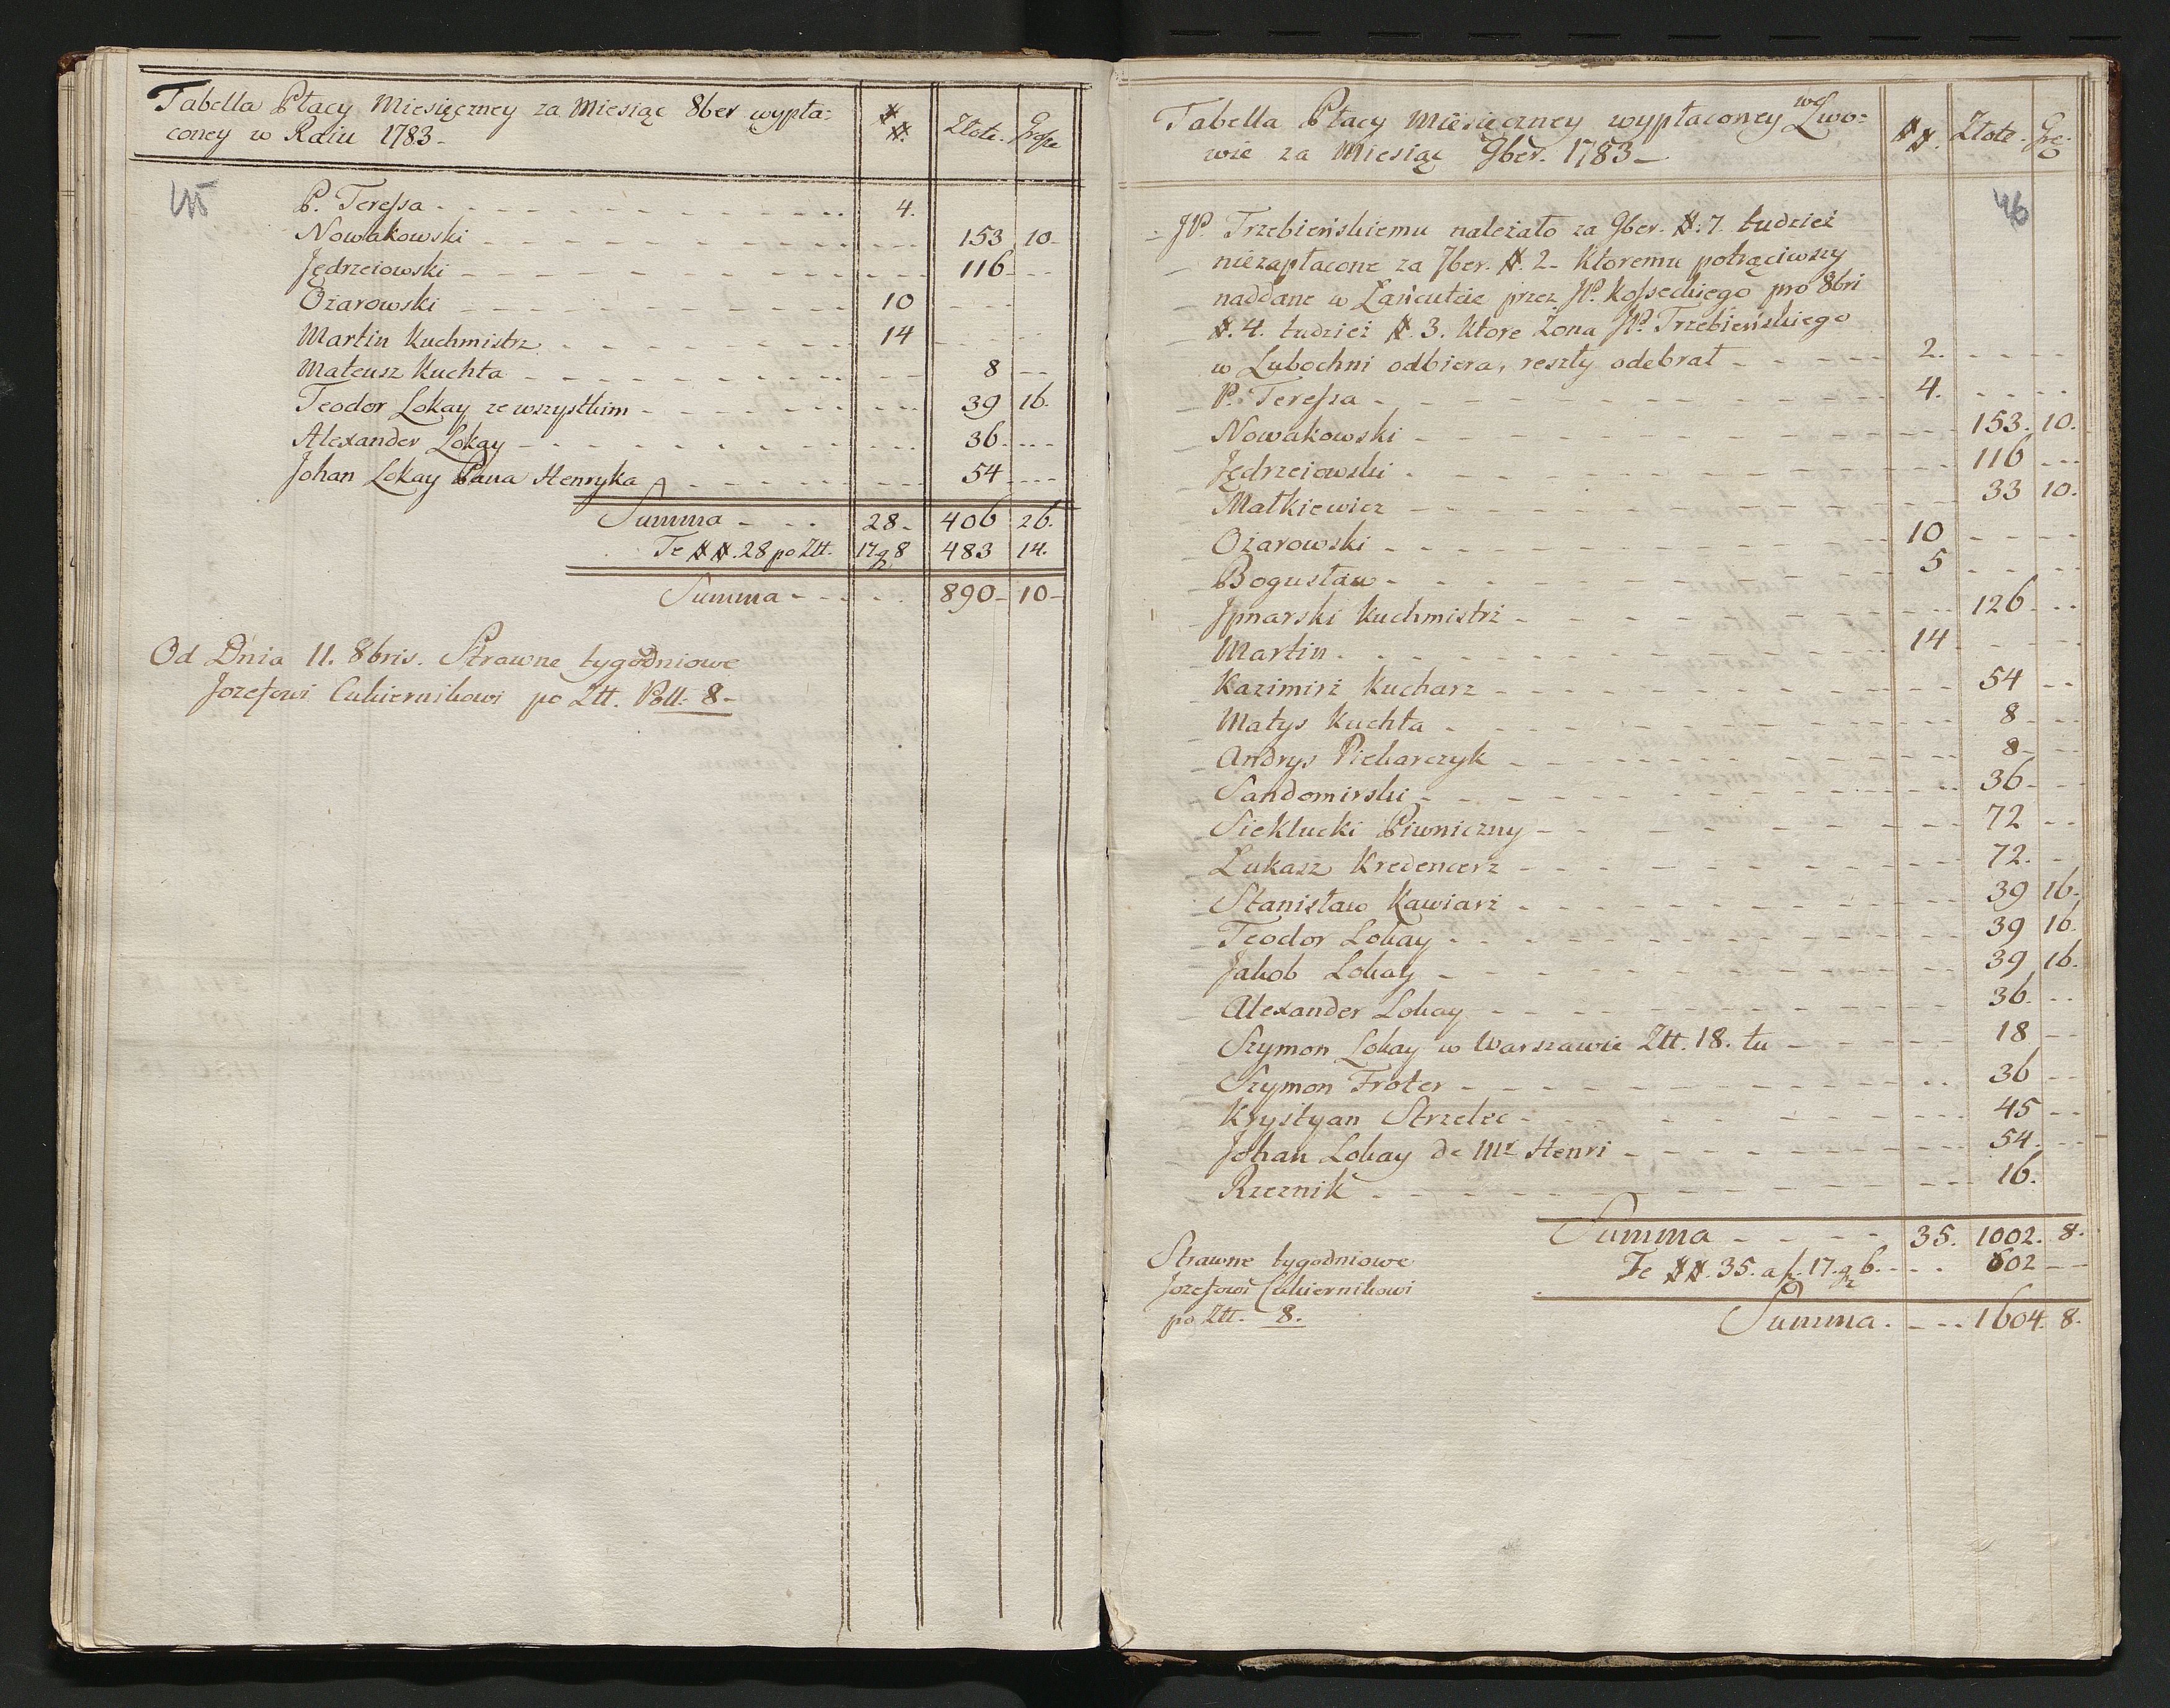 Tabella Płacy Miesięczney za Miesiąc 8ber wypła= ## Złote. Grosze
coney w Raiu 1783-
45
P. Teressa 4.
Nowakowski 153 10-
Jędrzeiowski 116
Ożarowski 10
Martin Kuchmistrz 14
Mateusz Kuchta 8
Teodor Lokay ze wszystkim 39 16.
Alexander Lokay 36.
Johan Lokay Pana Henryka 54
Summa 28- 406 26.
Te ##. 28 po Ztt. 17 g 8 483 14.
Summa 890- 10-
Od Dnia 11. 8bris. Strawne tygodniowe
Jozefowi Cukiernikowi po Ztt. Poll: 8-
Tabella Płacy Miesięczney wypłaconey we Lwo= ##. Złote. Gro:
wie za Miesiąc 9ber. 1783-
46
JP. Trzebieńskiemu należało za 9ber. #. 7. tudzież
niezapłacone za 7ber. #. 2- Ktoremu potrąciwszy
naddane w Łańcutcie przez JP. Kosseckiego pro 8bri
#. 4. tudzież #. 3. Ktore Zona JP. Trzebieńskiego
w Lubochni odbiera, reszty odebrał 2.
P. Teressa 4.
Nowakowski 153. 10.
Jędrzeiowski 116
Małkiewicz 33 10.
Ożarowski 10
Bogusław 5
Jpnarski Kuchmistrz 126
Martin 14
Kazimirz Kucharz 54
Matys Kuchta 8
Andrys Piekarczyk 8-
Sandomirski 36-
Sieklucki Piwniczny 72
Łukasz Kredencerz 72.
Stanisław Kawiarz 39 16.
Teodor Lokay 39 16.
Jakob Lokay 39 16.
Alexander Lokay 36.
Szymon Lokay w Warszawie Ztt. 18. tu 18
Szymon Froter 36
Krystyan Strzelec 45
Johan Lokay de Mr Henri 54.
Rzeznik 16.
Summa 35. 1002. 8.
Te ##. 35. a f. 17. g 6. 602
Summa 1604. 8.
Strawne tygodniowe
Jozefowi Cukiernikowi
po Ztt. 8.